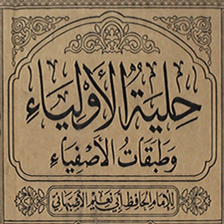 حلية الأولياء
وطبقات الأصفياء
للإمام الحافظ أبي نعيم الأصبهاني